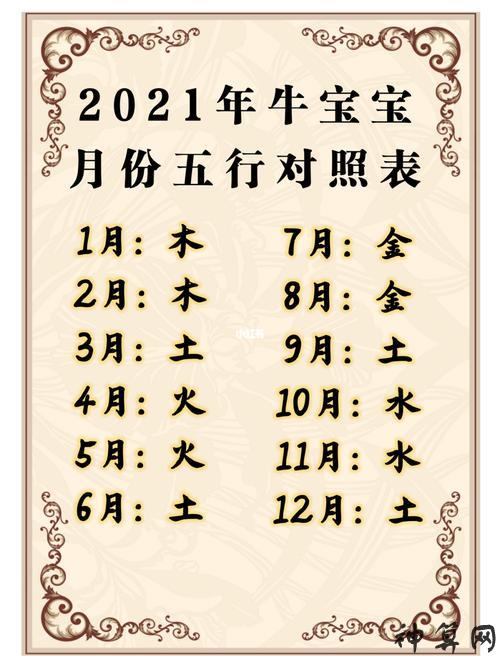 2021年牛宝宝
月份五行对照表
1月：木
2月：木
3月：土
4月：火
5月：火
6月：土
7月：金
8月：金
9月：土
10月：水
11月：水
12月：土
小红书
神算网